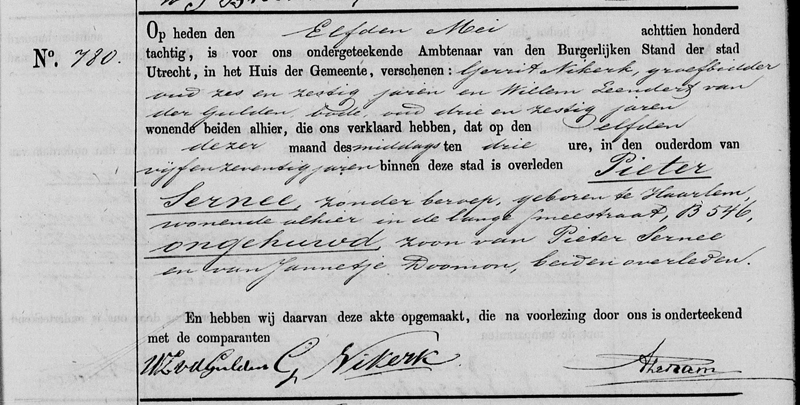 Op heden den Elfden Mei achttien honderd
No. 780. tachtig, is voor ons ondergeteekende Ambtenaar van den Burgerlijken Stand der stad
Utrecht, in het Huis der Gemeente, verschenen: Gerrit Nikerk, groefbidder
oud zes en zestig jaren en Willem Leendert van
der Gulden, bode, oud drie en zestig jaren
wonende beiden alhier, die ons verklaard hebben, dat op den elfden
dezer maand des middags ten drie ure, in den ouderdom van
vijf en zeventig jaren binnen deze stad is overleden Pieter
Sernee, zonder beroep, geboren te Haarlem,
wonende alhier in de lange smeestraat, B 546,
ongehuwd, zoon van Pieter Sernee
en van Jannetje Doomon, beiden overleden.
En hebben wij daarvan deze akte opgemaakt, die na voorlezing door ons is onderteekend
met de comparanten
WL vd Gulden G Nikerk